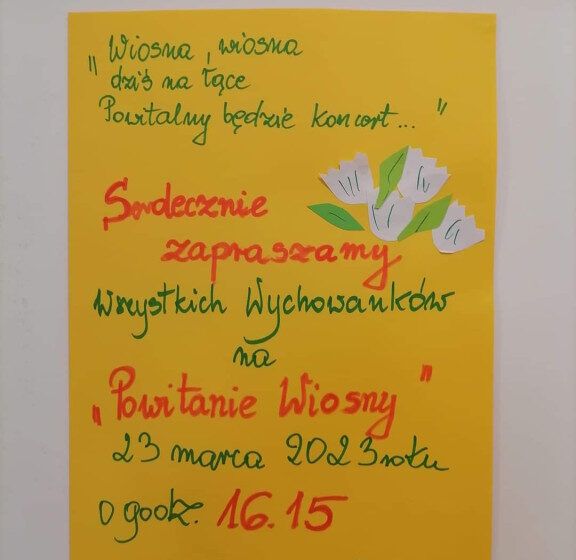 "Wiosna, wiosna
dziś na łące
Powitalny będzie koncert..."
Serdecznie
zapraszamy
Wszystkich Wychowanków
na
"Powitanie Wiosny"
23 marca 2023 roku
o godz. 16.15